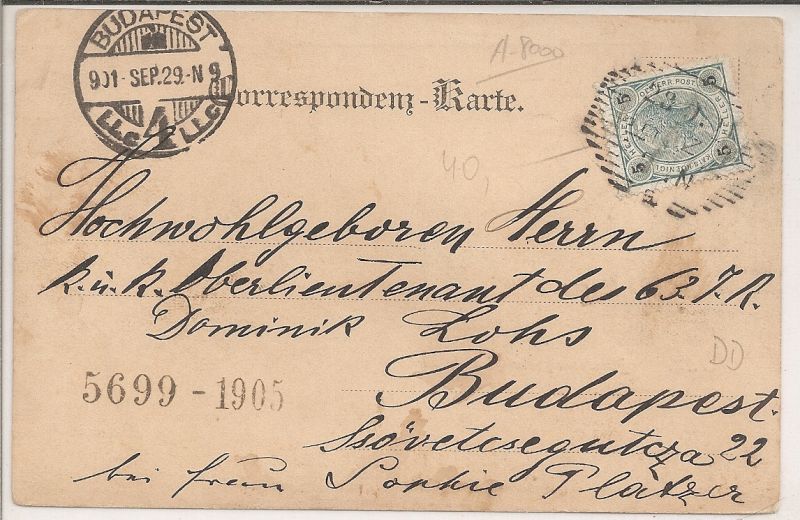 BUDAPEST
901 · SEP. 29 · N 9
4
A-8000
Correspondenz-Karte.
5 5
5 5
40,
Hochwohlgeboren Herrn
k. u. k. Oberlieutenant des 63. I. R.
Dominik Lohs
DD
5699 - 1905
Budapest.
22
bei Frau Sophie Platzer